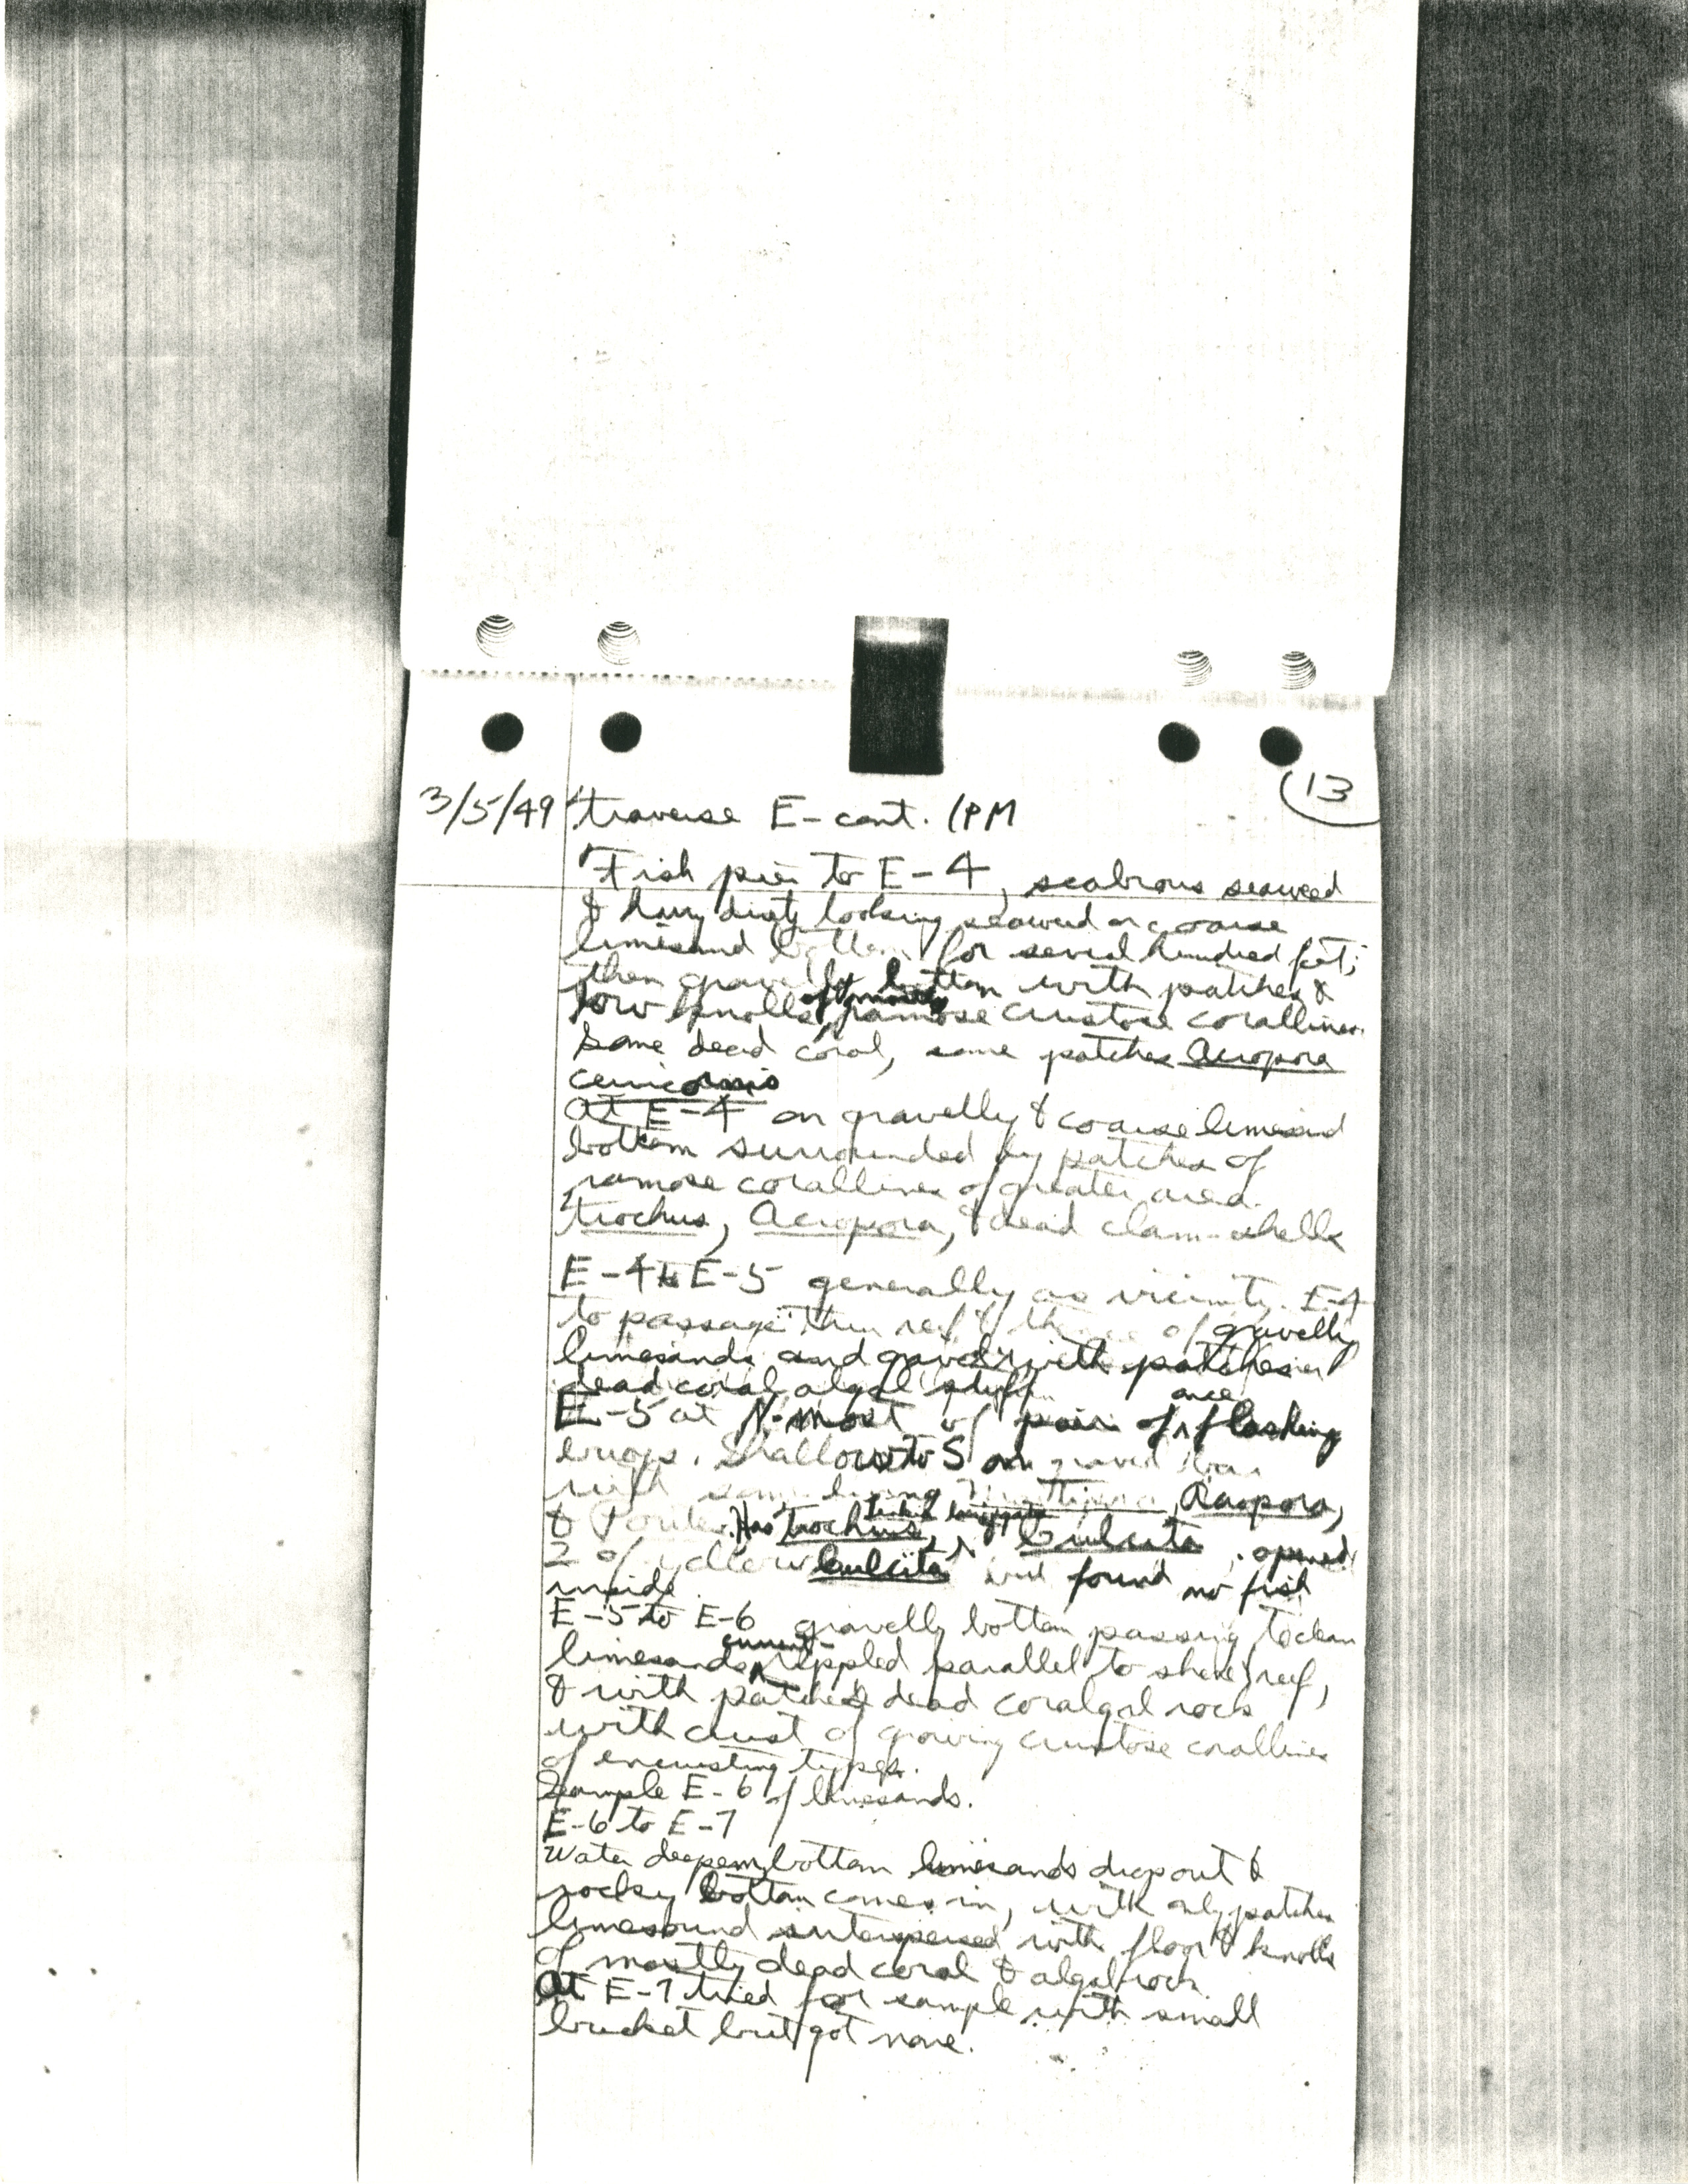 13
3/5/49 Traverse E-cont. 1PM
Fish pier to E-4, scabrous seaweed
& hairy dirty looking seaweed on coarse
limesand bottom for several hundred feet;
then gravelly bottom with patches &
low knolls of mostly ramose crustose corallines.
Some dead coral, some patches Acropora
cervicornis
At E-4 on gravelly & coarse limesand
bottom surrounded by patches of
ramose corallines of greater area.
Trochus, Acropora, & dead clam-shells
E-4 to E-5 generally as vicinity E-4
to passage thru reef & of gravelly
limesands and gravel with patches of
dead coral algal stuff.
E-5 at N-most of pair of once flashing
buoys. Shallows to S on gravel bar
with some living Acropora,
& Porites. Has Trochus, Culcita, opened
2 of yellow Culcita but found no fish
inside.
E-5 to E-6 gravelly bottom passing to clean
limesands, current-rippled parallel to shore & reef,
& with patches dead coralgal rock
with crust of growing crustose corallines
of encrusting types.
Sample E-6 of limesands.
E-6 to E-7
Water deepens, bottom limesands drop out &
rocky bottom comes in, with only patches
limesand interspersed with floor & knolls
of mostly dead coral & algal rock
At E-7 tried for sample with small
bucket but got none.